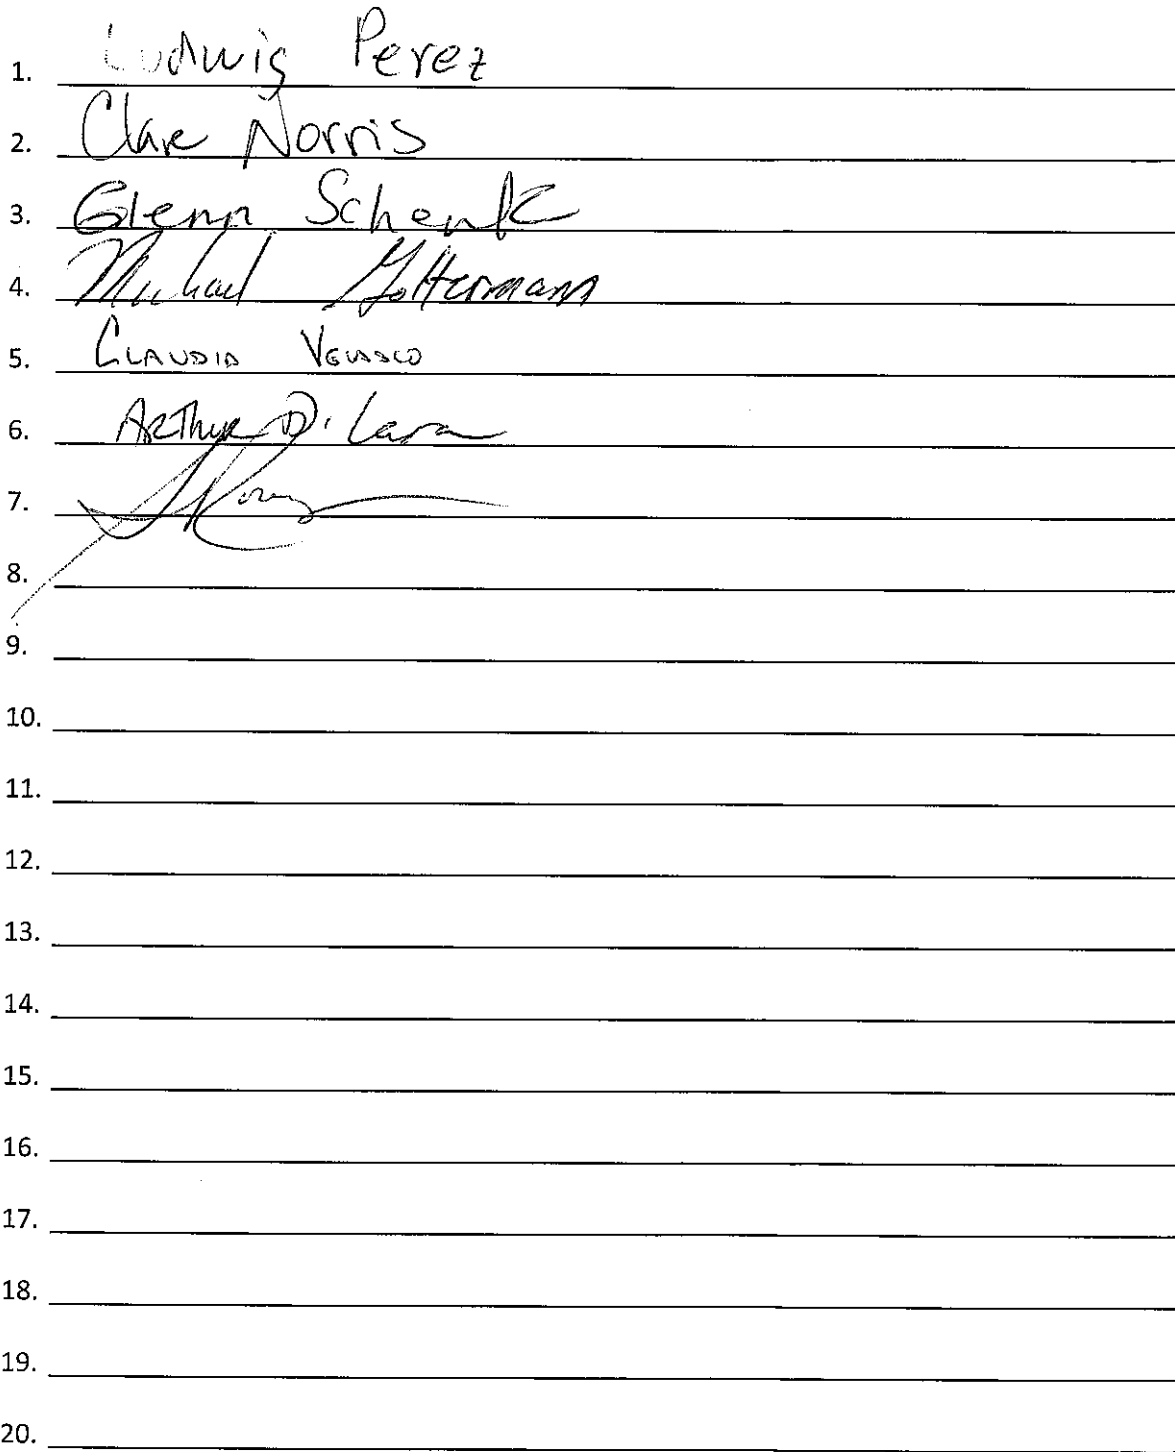 1. Ludwig Perez
2. Clare Norris
3. Glenn Schenk
4. Michael Goltermann
5. CLAUDIA VELASCO
6. Arthur D. Lara
7.
8.
9.
10.
11.
12.
13.
14.
15.
16.
17.
18.
19.
20.